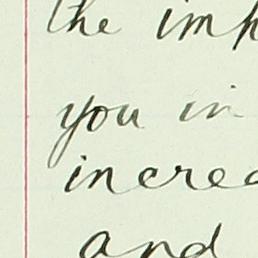 the imp
you in
increa
and